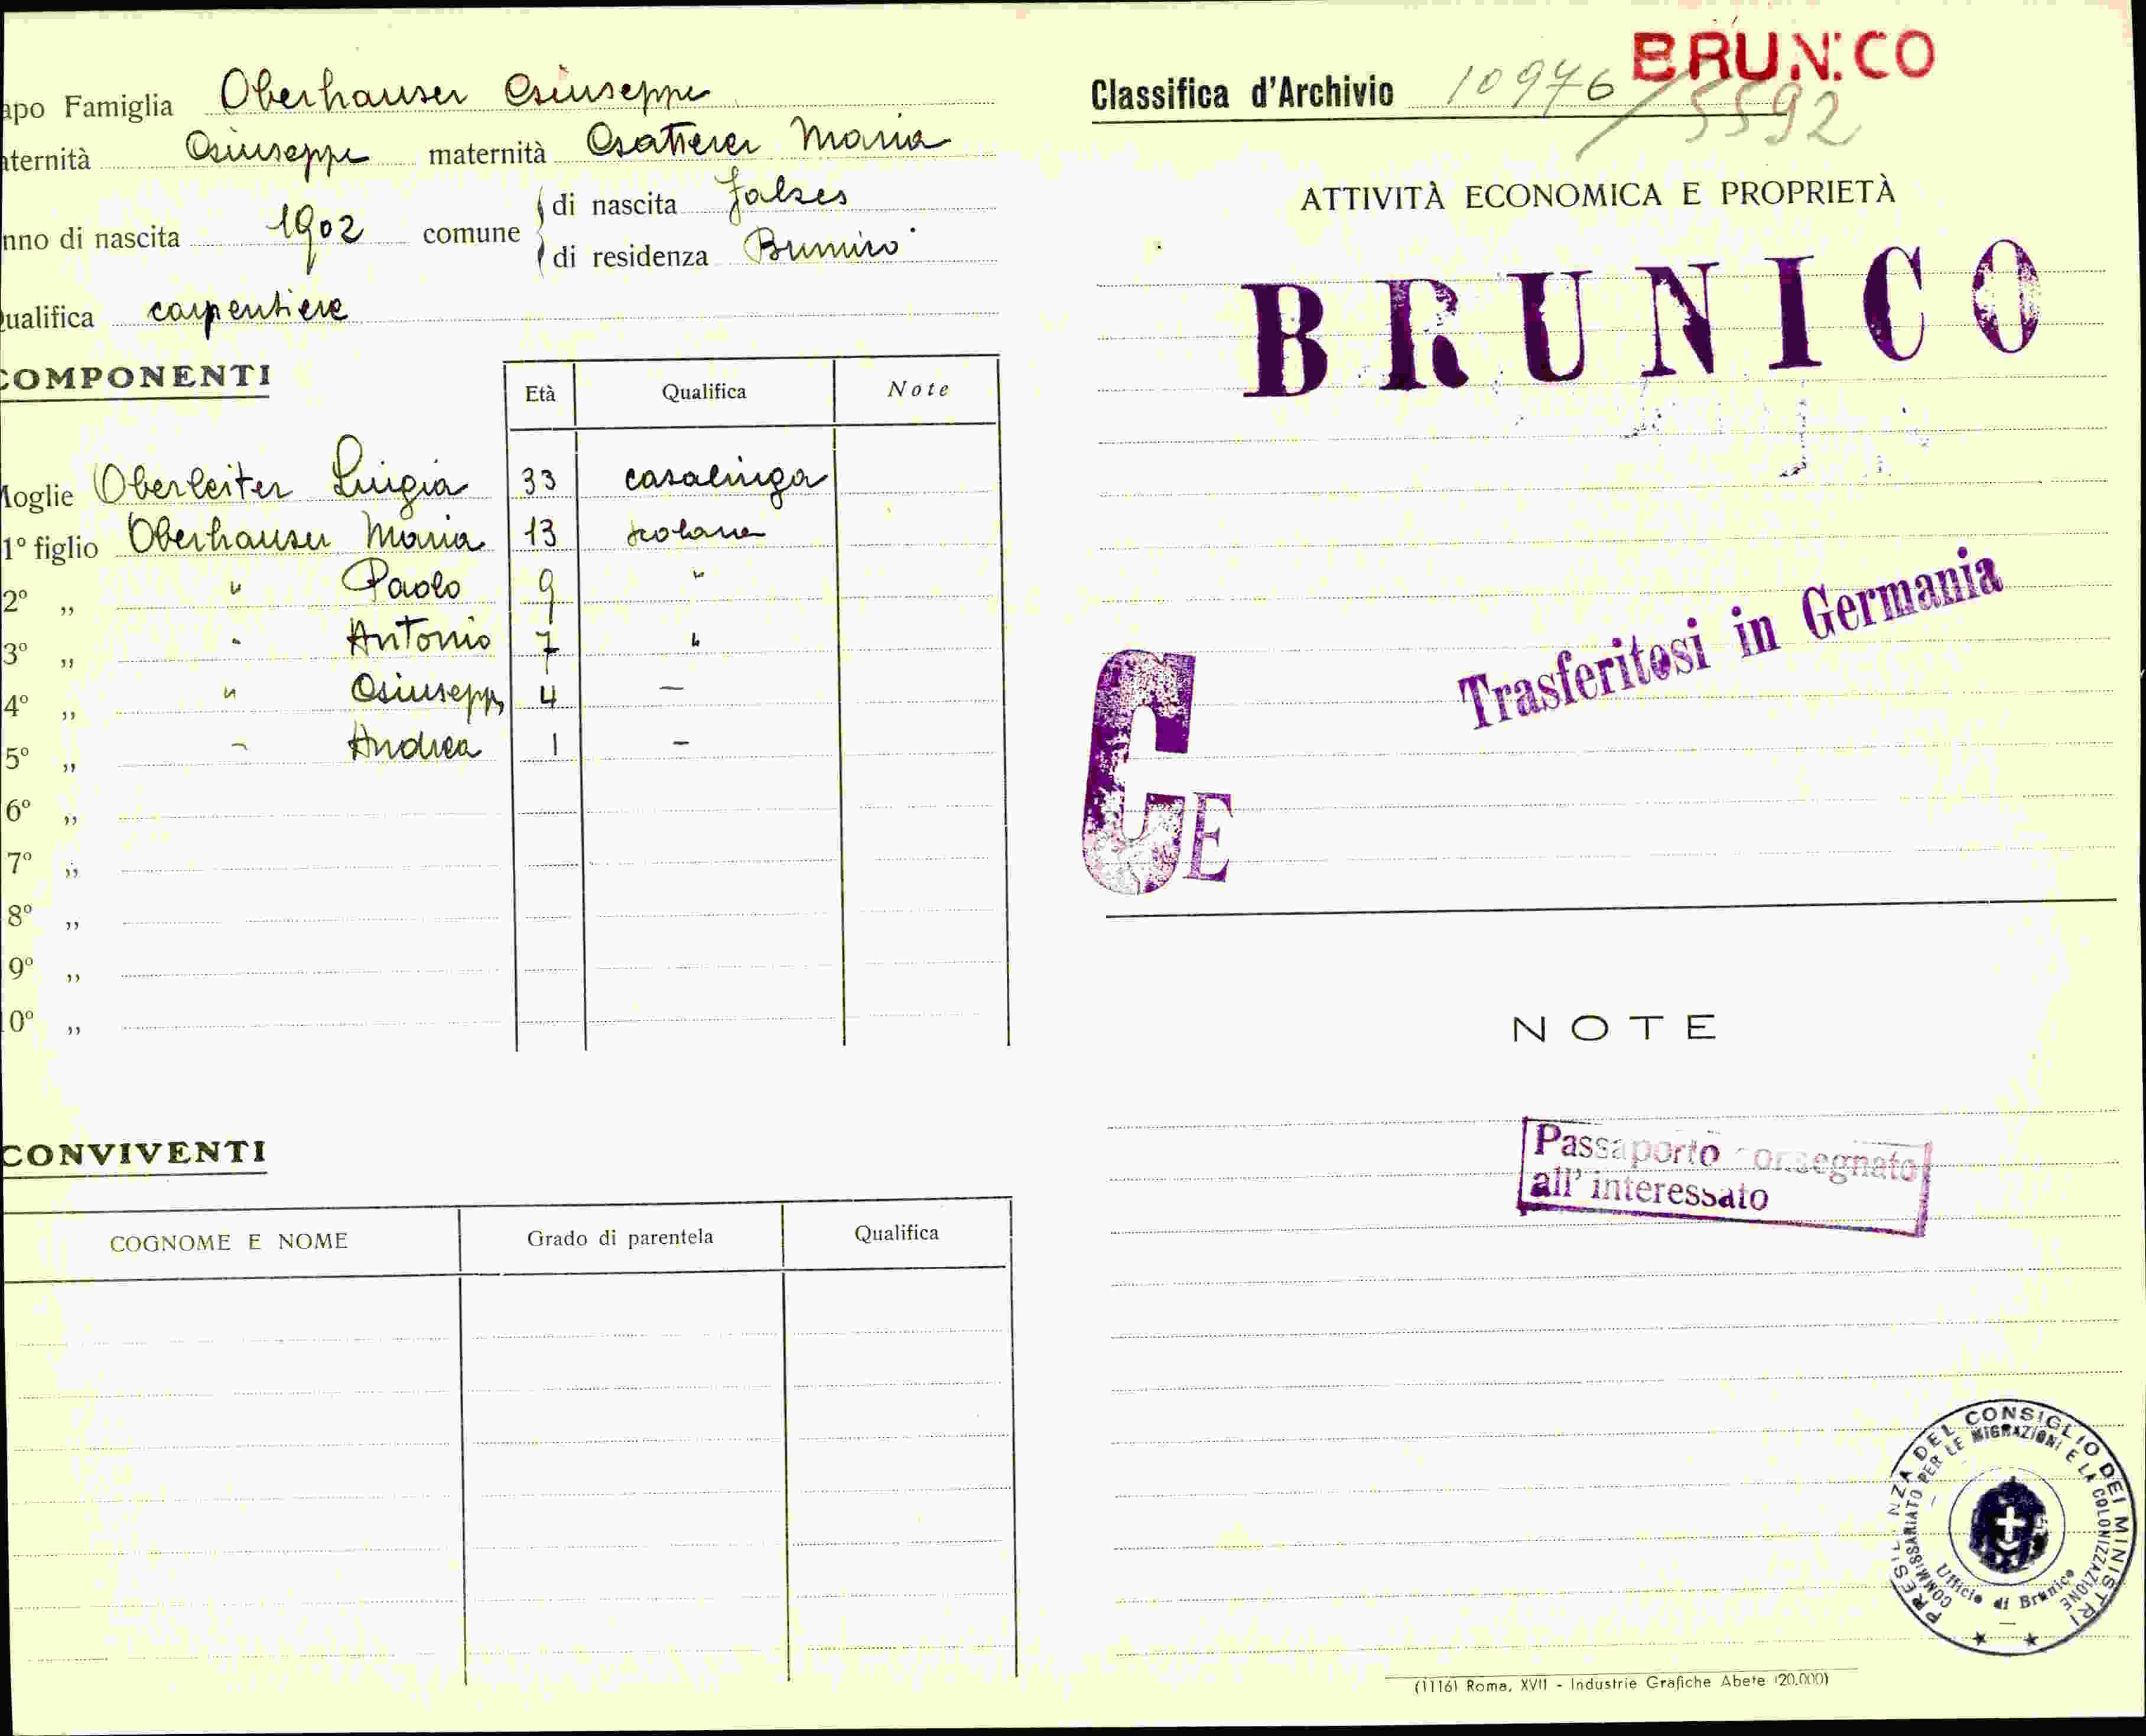 apo Famiglia Oberhauser Giuseppe
aternità Giuseppe maternità Gatterer Maria
nno di nascita 1902 comune di nascita Falzes
di residenza Brunico
ualifica carpentiere
COMPONENTI
Età Qualifica Note
Moglie Oberleiter Luigia 33 casalinga
1° figlio Oberhauser Maria 13 scolara
2° „ " Paolo 9 "
3° „ " Antonio 7 "
4° „ " Giuseppe 4 —
5° „ " Andrea 1 —
6° „
7° „
8° „
9° „
0° „
CONVIVENTI
COGNOME E NOME Grado di parentela Qualifica
BRUNICO
Classifica d'Archivio 10976/5592
ATTIVITÀ ECONOMICA E PROPRIETÀ
BRUNICO
Trasferitosi in Germania
GE
NOTE
Passaporto consegnato
all'interessato
PRESIDENZA DEL CONSIGLIO DEI MINISTRI
COMMISSARIATO PER LE MIGRAZIONI E LA COLONIZZAZIONE
Ufficio di Brunico
(1116) Roma, XVII - Industrie Grafiche Abete (20.000)